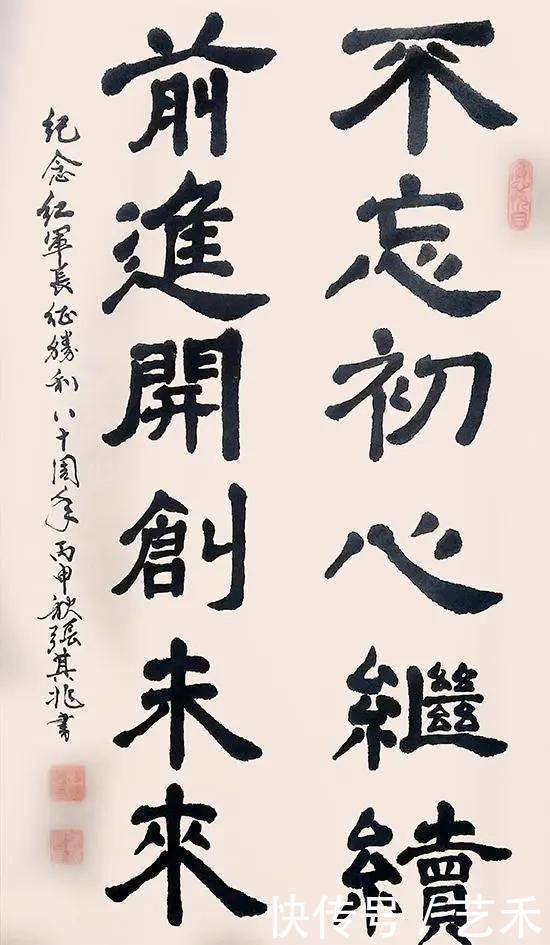 不忘初心繼續
前進開創未來
紀念紅軍長征勝利八十周年丙申秋張其兆書
快传号／艺禾